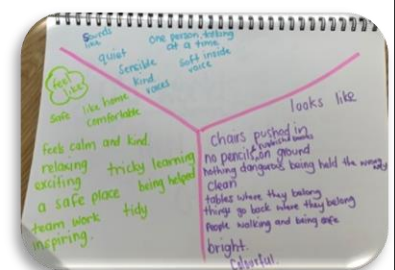 Sounds like
one person talking
at a time
quiet
soft inside
voice
Sensible
kind
voices
feel
like
safe like home
comfortable
feels calm and kind
relaxing tricky learning
exciting being helped
a safe place
team work tidy
inspiring.
looks like
Chairs pushed in
no pencils on ground
nothing dangerous being held the wrong way
clean
tables where they belong
things go back where they belong
People walking and being safe
bright.
Colourful.